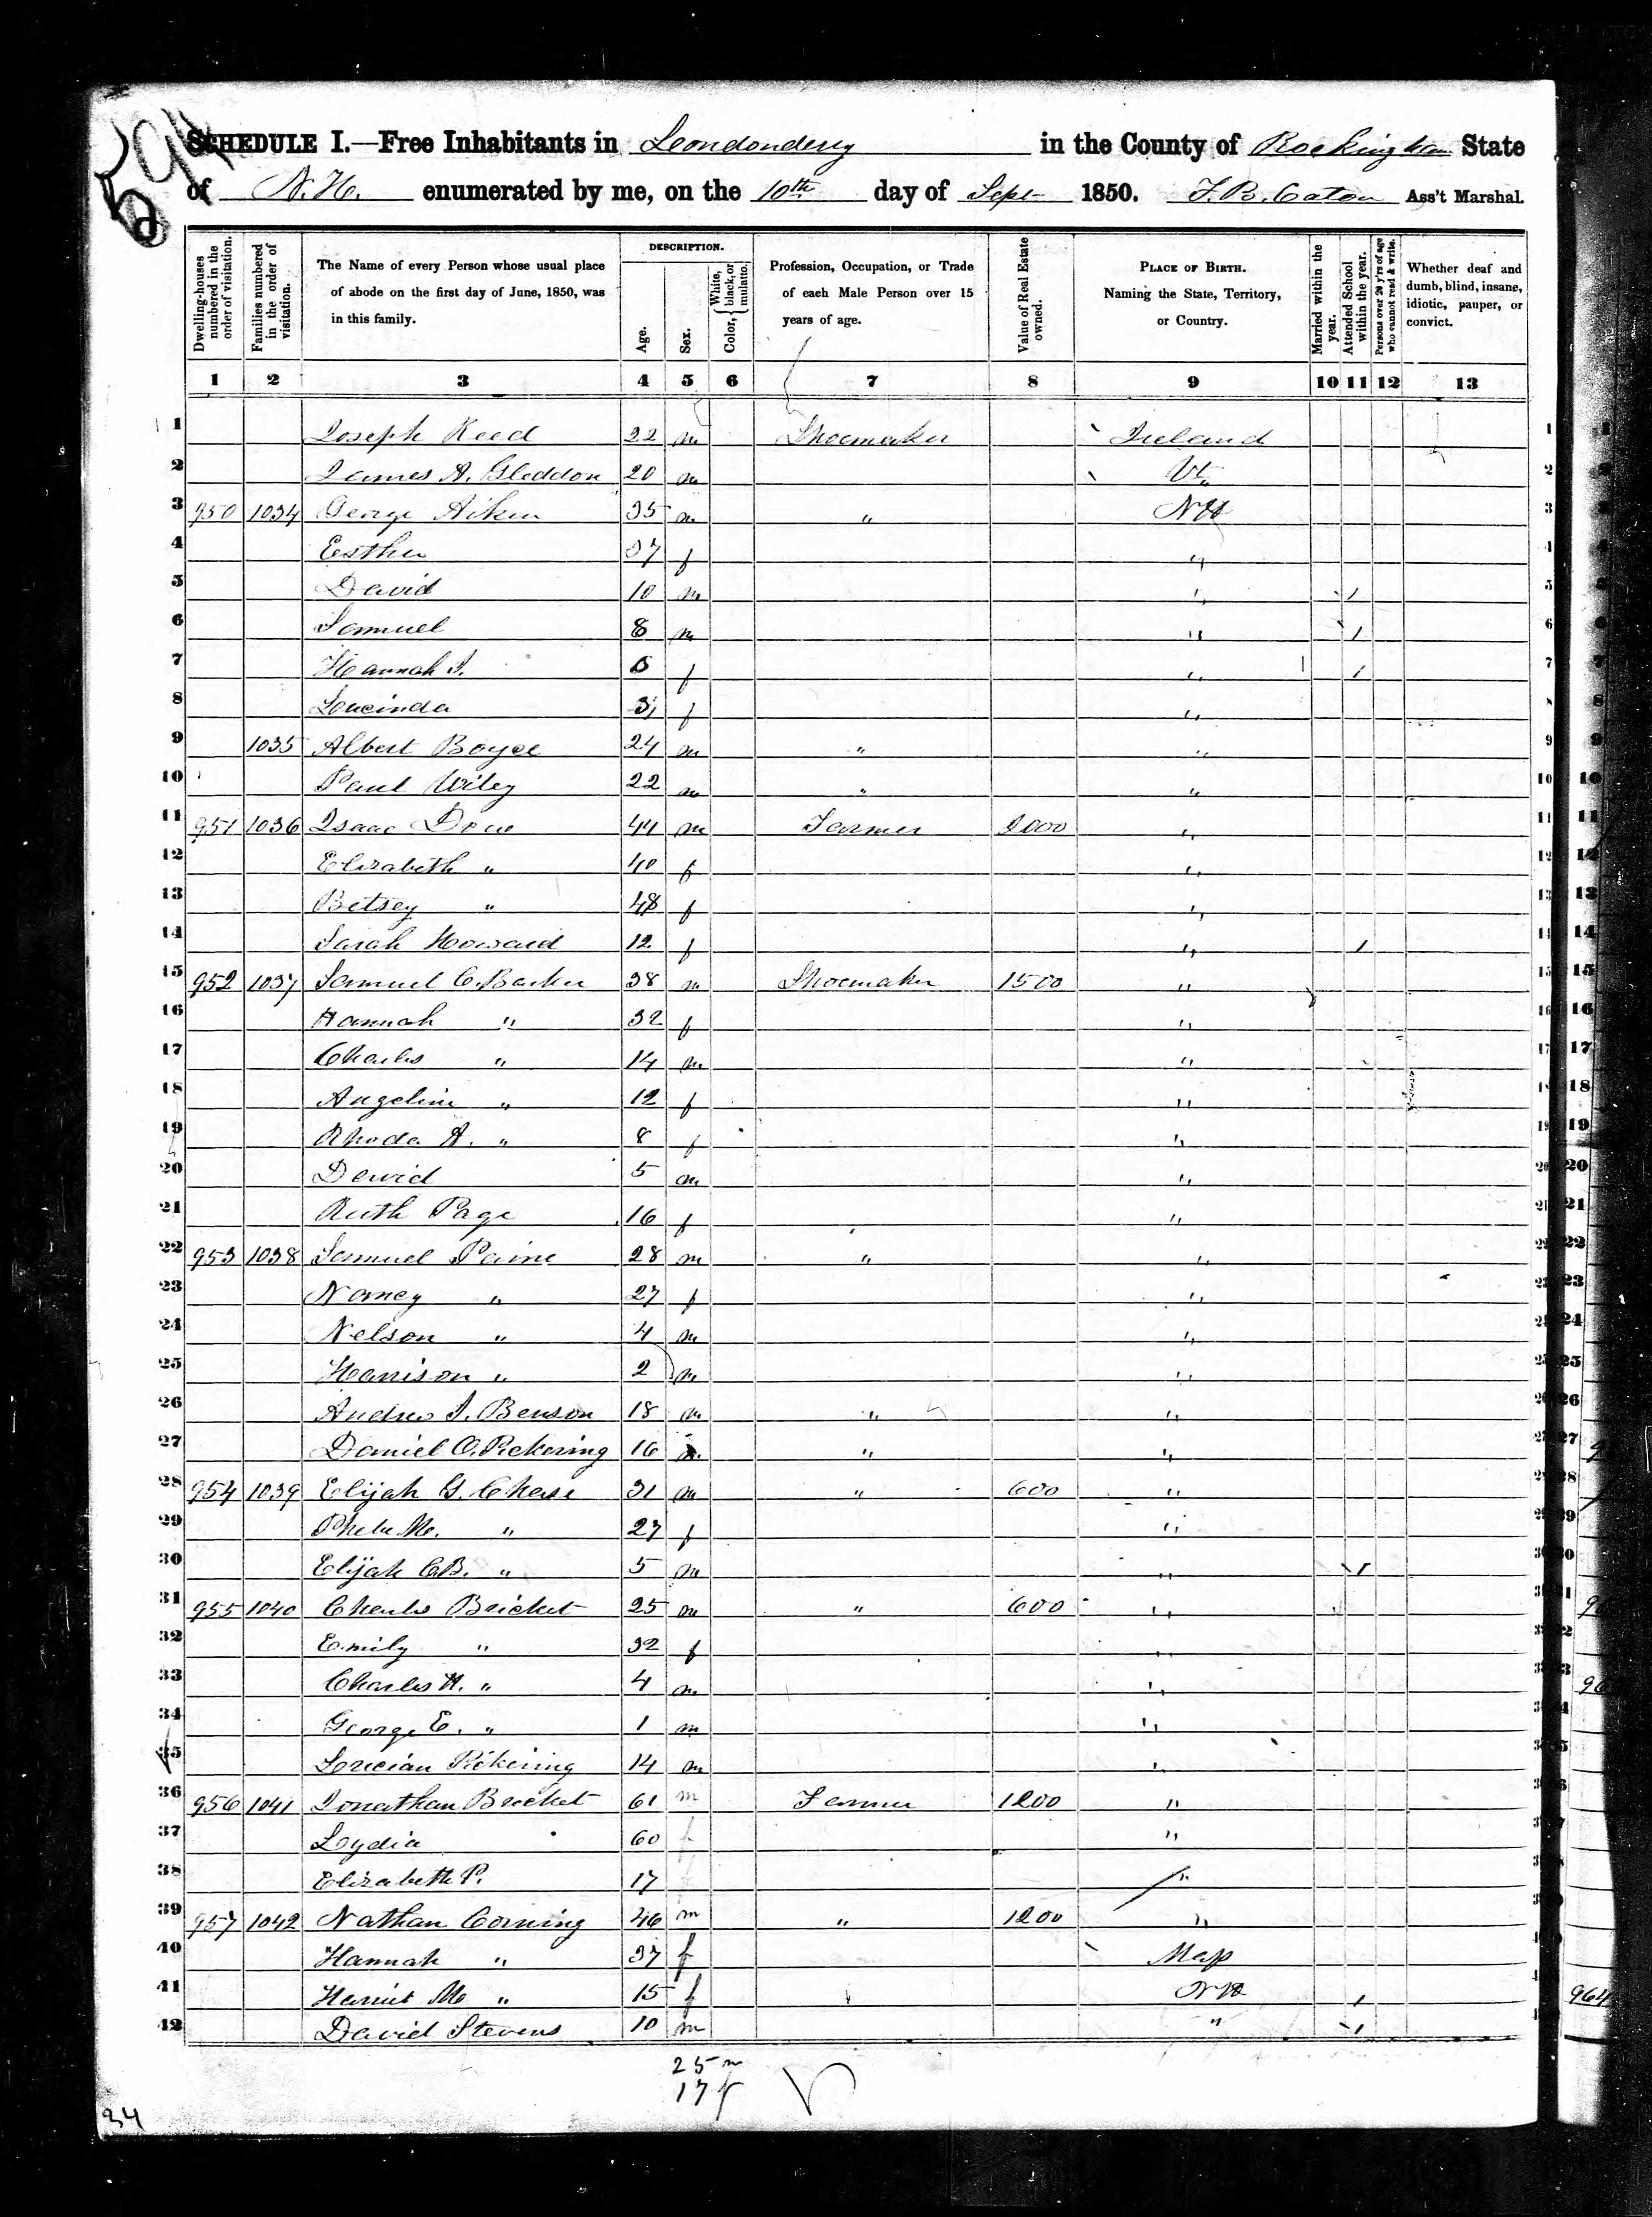 594
SCHEDULE I.—Free Inhabitants in Londonderry in the County of Rockingham State
of N.H. enumerated by me, on the 10th day of Sept 1850. Ass't Marshal.
Dwelling-houses numbered in the order of visitation.
Families numbered in the order of visitation.
The Name of every Person whose usual place of abode on the first day of June, 1850, was in this family.
DESCRIPTION.
Age.
Sex.
Color, { White, black, or mulatto.
Profession, Occupation, or Trade of each Male Person over 15 years of age.
Value of Real Estate owned.
PLACE OF BIRTH. Naming the State, Territory, or Country.
Married within the year.
Attended School within the year.
Persons over 20 y'rs of age who cannot read & write.
Whether deaf and dumb, blind, insane, idiotic, pauper, or convict.
1 2 3 4 5 6 7 8 9 10 11 12 13
1 Joseph Reed 22 m Shoemaker Ireland 1
2 James A. Gleddon 20 m Vt. 2
3 950 1034 George Aiken 35 m " N H 3
4 Esther 37 f " 4
5 David 10 m " 1 5
6 Samuel 8 m " 1 6
7 Hannah J. f " 1 7
8 Lucinda 3 f " 8
9 1035 Albert Boyce 24 m " " 9
10 Paul Wiley 22 m " " 10
11 951 1036 Isaac Dow 44 m Farmer 2000 " 11
12 Elizabeth " 40 f " 12
13 Betsey " 48 f " 13
14 Sarah Howard 12 f " 1 14
15 952 1037 Samuel C. Barker 38 m Shoemaker 1500 " 15
16 Hannah " 32 f " 16
17 Charles " 14 m " 17
18 Angeline " 12 f " 18
19 Rhoda A. " 8 f " 19
20 David 5 m " 20
21 Ruth Page 16 f " 21
22 953 1038 Samuel Paine 28 m " " 22
23 Nancy " 27 f " 23
24 Nelson " 4 m " 24
25 Harrison " 2 m " 25
26 Andrew J. Benson 18 m " " 26
27 Daniel O. Pickering 16 m " " 27
28 954 1039 Elijah G. Chase 31 m " 600 " 28
29 Phebe M. " 27 f " 29
30 Elijah C.B. " 5 m " 1 30
31 955 1040 Charles Bricket 25 m " 600 " 31
32 Emily " 32 f "
33 Charles H. " 4 m "
34 George E. " 1 m "
35 Lucian Pickering 14 m "
36 956 1041 Jonathan Bricket 61 m Farmer 1200 "
37 Lydia 60 f "
38 Elizabeth P. 17 "
39 957 1042 Nathan Corning 46 m " 1200 "
40 Hannah " 37 f Mass
41 Harriet M " 15 f N H 1
42 David Stevens 10 m " 1
25 m
17 f
34